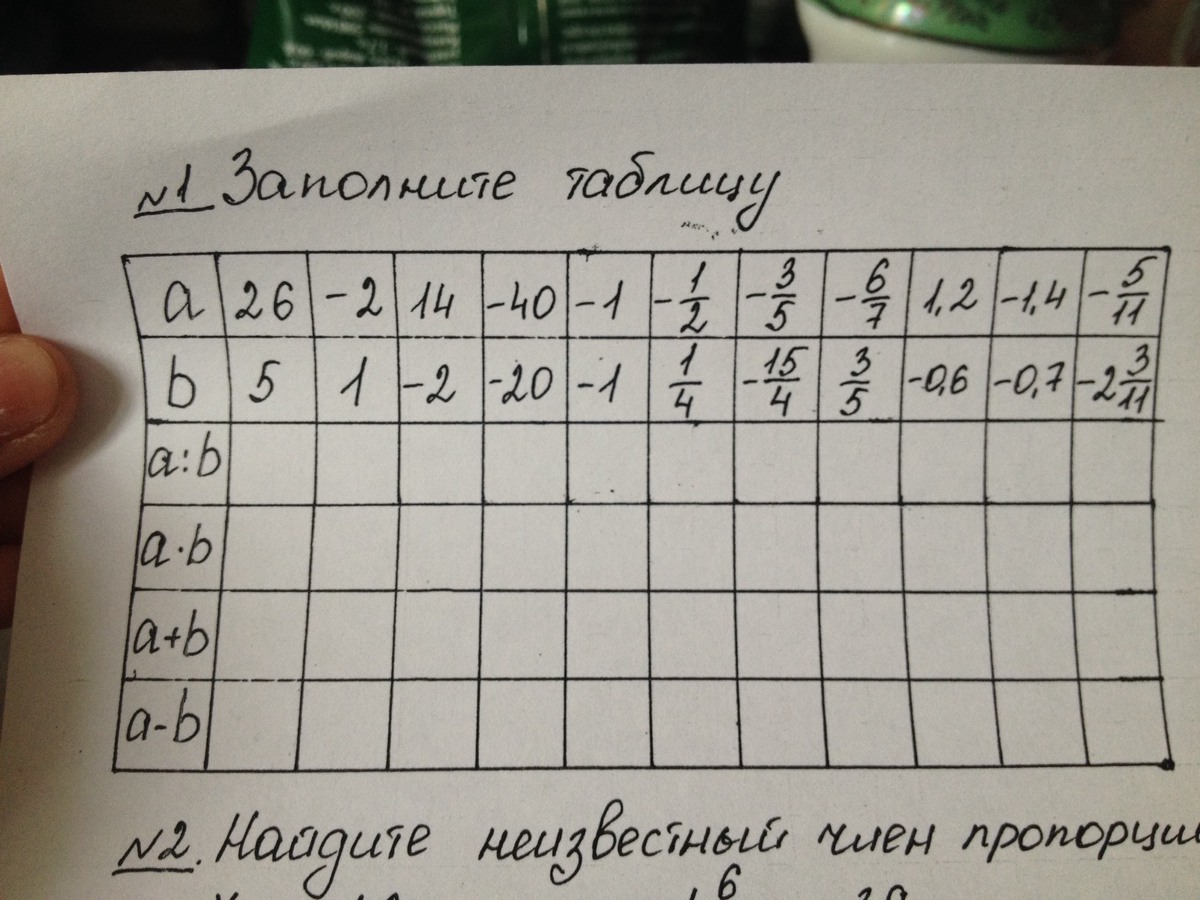 №1 Заполните таблицу
a 26 -2 14 -40 -1 -1/2 -3/5 -6/7 1,2 -1,4 -5/11
b 5 1 -2 -20 -1 1/4 -15/4 3/5 -0,6 -0,7 -2 3/11
a:b
a·b
a+b
a-b
№2. Найдите неизвестный член пропорции